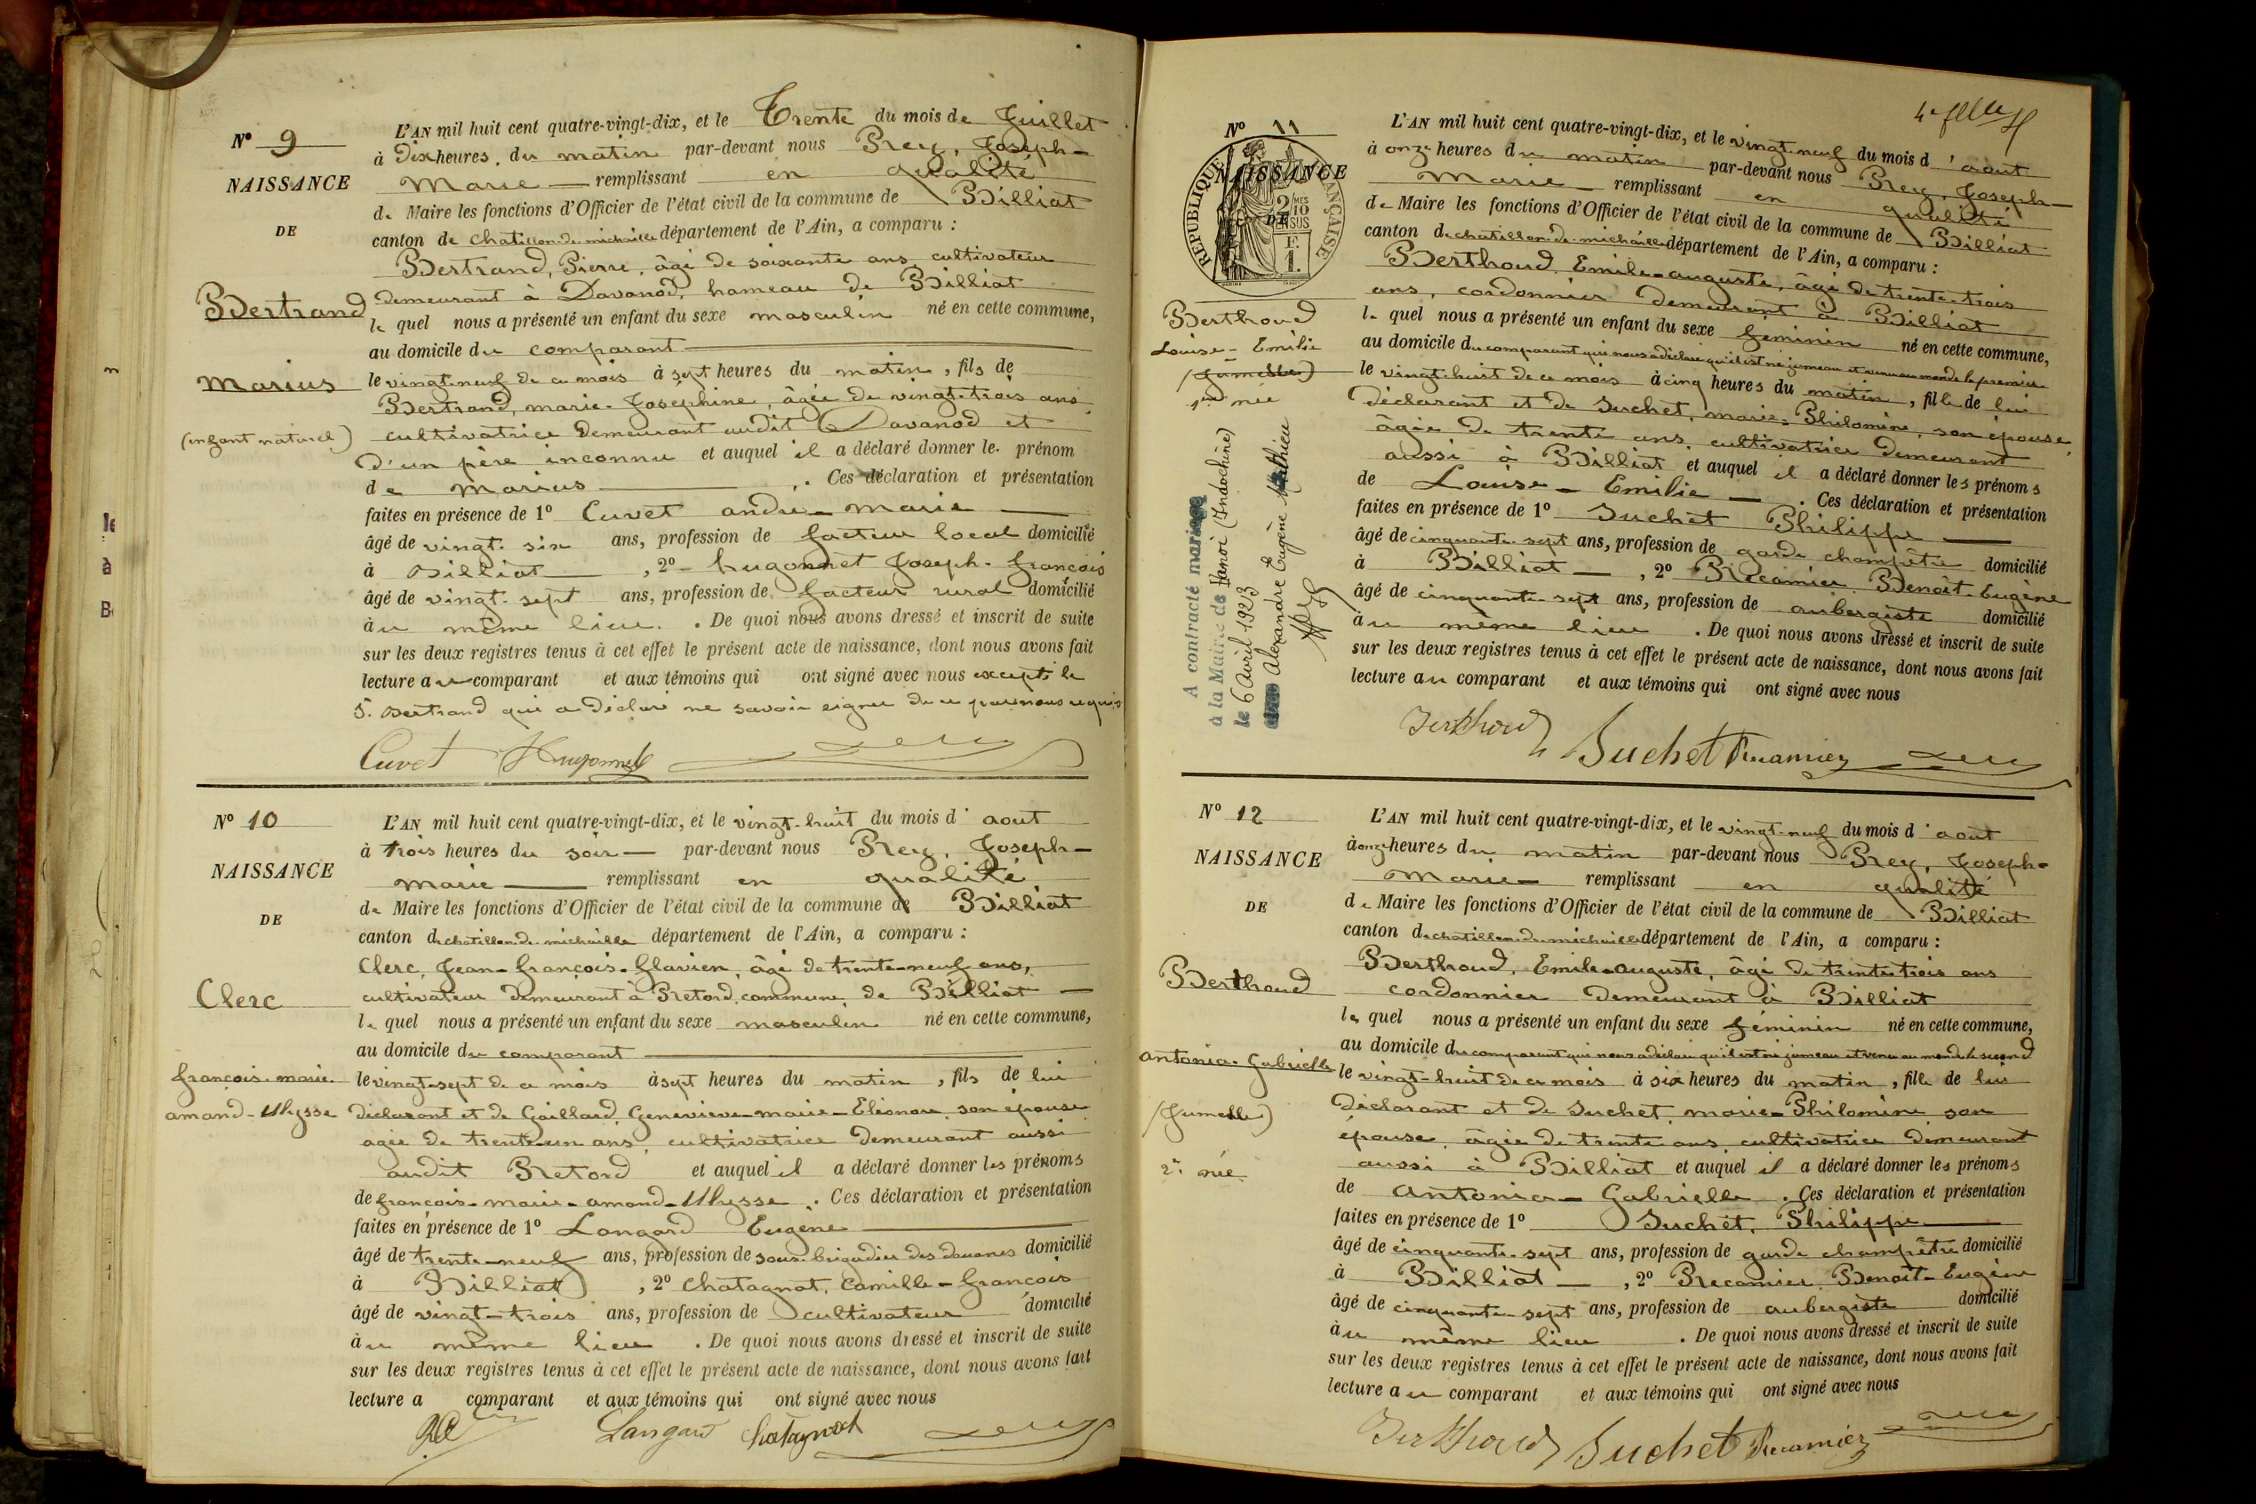 Nº 9
NAISSANCE
DE
Bertrand
Marius
(enfant naturel)
L'AN mil huit cent quatre-vingt-dix, et le Trente du mois de Juillet
à Dix heures du matin par-devant nous Prey, Joseph-
Marie remplissant en qualité
de Maire les fonctions d'Officier de l'état civil de la commune de Billiat
canton de Chatillon-de-michaille département de l'Ain, a comparu :
Bertrand, Pierre, âgé de soixante ans, cultivateur
demeurant à Davanod, hameau de Billiat
lequel nous a présenté un enfant du sexe masculin né en cette commune,
au domicile du comparant
le vingt-neuf de ce mois à sept heures du matin, fils de
Bertrand, marie-Joséphine, âgée de vingt-trois ans,
cultivatrice demeurant audit Davanod et
d'un père inconnu et auquel il a déclaré donner le prénom
de Marius . Ces déclaration et présentation
faites en présence de 1º Cuvet andré-marie
âgé de vingt-six ans, profession de facteur local domicilié
à Billiat , 2º hugonnet Joseph-françois
âgé de vingt-sept ans, profession de facteur rural domicilié
au même lieu . De quoi nous avons dressé et inscrit de suite
sur les deux registres tenus à cet effet le présent acte de naissance, dont nous avons fait
lecture au comparant et aux témoins qui ont signé avec nous excepté le
S. Bertrand qui a déclaré ne savoir signer de ce par nous requis
Cuvet Hugonnet
Nº 10
NAISSANCE
DE
Clerc
françois-marie-
amand-Ulysse
L'AN mil huit cent quatre-vingt-dix, et le vingt-huit du mois d'aout
à trois heures du soir par-devant nous Prey, Joseph-
marie remplissant en qualité
de Maire les fonctions d'Officier de l'état civil de la commune de Billiat
canton de chatillon-de-michaille département de l'Ain, a comparu :
Clerc, Jean-françois-flavien, âgé de trente-neuf ans,
cultivateur demeurant à Retord, commune de Billiat
lequel nous a présenté un enfant du sexe masculin né en cette commune,
au domicile du comparant
le vingt-sept de ce mois à sept heures du matin, fils de lui
déclarant et de Gaillard, Geneviève-marie-Eléonore, son épouse
agée de trente-un ans, cultivatrice demeurant aussi
audit Retord et auquel il a déclaré donner les prénoms
de françois-marie-amand-Ulysse . Ces déclaration et présentation
faites en présence de 1º Langard Eugène
âgé de trente-neuf ans, profession de sous-brigadier des douanes domicilié
à Billiat , 2º Chatagnat, Camille-françois
âgé de vingt-trois ans, profession de cultivateur domicilié
au même lieu . De quoi nous avons dressé et inscrit de suite
sur les deux registres tenus à cet effet le présent acte de naissance, dont nous avons fait
lecture a comparant et aux témoins qui ont signé avec nous
Langard Chatagnat
Nº 11
NAISSANCE
DE
REPUBLIQUE FRANÇAISE
2/10
EN SUS
F.
1.
Berthoud
Louise-Emilie
(Jumelle)
1re née
A contracté mariage
à la Mairie de Hanoï (Indochine)
le 6 avril 1923
avec Alexandre Eugène Mathieu
L'AN mil huit cent quatre-vingt-dix, et le vingt-neuf du mois d'aout
à onze heures du matin par-devant nous Prey, Joseph-
Marie remplissant en qualité
de Maire les fonctions d'Officier de l'état civil de la commune de Billiat
canton de chatillon-de-michaille département de l'Ain, a comparu :
Berthoud, Emile-auguste, âgé de trente-trois
ans, cordonnier demeurant à Billiat
lequel nous a présenté un enfant du sexe féminin né en cette commune,
au domicile du comparant qui nous a déclaré qu'il est né jumeau et venu au monde le premier
le vingt-huit de ce mois à cinq heures du matin, fille de lui
déclarant et de Suchet, marie-Philomène, son épouse,
âgée de trente ans, cultivatrice demeurant
aussi à Billiat et auquel il a déclaré donner les prénoms
de Louise-Emilie . Ces déclaration et présentation
faites en présence de 1º Suchet Philippe
âgé de cinquante-sept ans, profession de garde champêtre domicilié
à Billiat , 2º Récamier, Benoit-Eugène
âgé de cinquante-sept ans, profession de aubergiste domicilié
au même lieu . De quoi nous avons dressé et inscrit de suite
sur les deux registres tenus à cet effet le présent acte de naissance, dont nous avons fait
lecture au comparant et aux témoins qui ont signé avec nous
Berthoud Suchet Récamier
Nº 12
NAISSANCE
DE
Berthoud
antonia-Gabrielle
(Jumelle)
2e née
L'AN mil huit cent quatre-vingt-dix, et le vingt-neuf du mois d'aout
à onze heures du matin par-devant nous Prey, Joseph-
Marie remplissant en qualité
de Maire les fonctions d'Officier de l'état civil de la commune de Billiat
canton de chatillon-de-michaille département de l'Ain, a comparu :
Berthoud, Emile-auguste, âgé de trente-trois ans
cordonnier demeurant à Billiat
lequel nous a présenté un enfant du sexe féminin né en cette commune,
au domicile du comparant qui nous a déclaré qu'il est né jumeau et venu au monde le second
le vingt-huit de ce mois à six heures du matin, fille de lui
déclarant et de Suchet, marie-Philomène son
épouse, âgée de trente ans, cultivatrice demeurant
aussi à Billiat et auquel il a déclaré donner les prénoms
de antonia-Gabrielle . Ces déclaration et présentation
faites en présence de 1º Suchet, Philippe
âgé de cinquante-sept ans, profession de garde champêtre domicilié
à Billiat , 2º Récamier Benoit-Eugène
âgé de cinquante-sept ans, profession de aubergiste domicilié
au même lieu . De quoi nous avons dressé et inscrit de suite
sur les deux registres tenus à cet effet le présent acte de naissance, dont nous avons fait
lecture au comparant et aux témoins qui ont signé avec nous
Berthoud Suchet Récamier